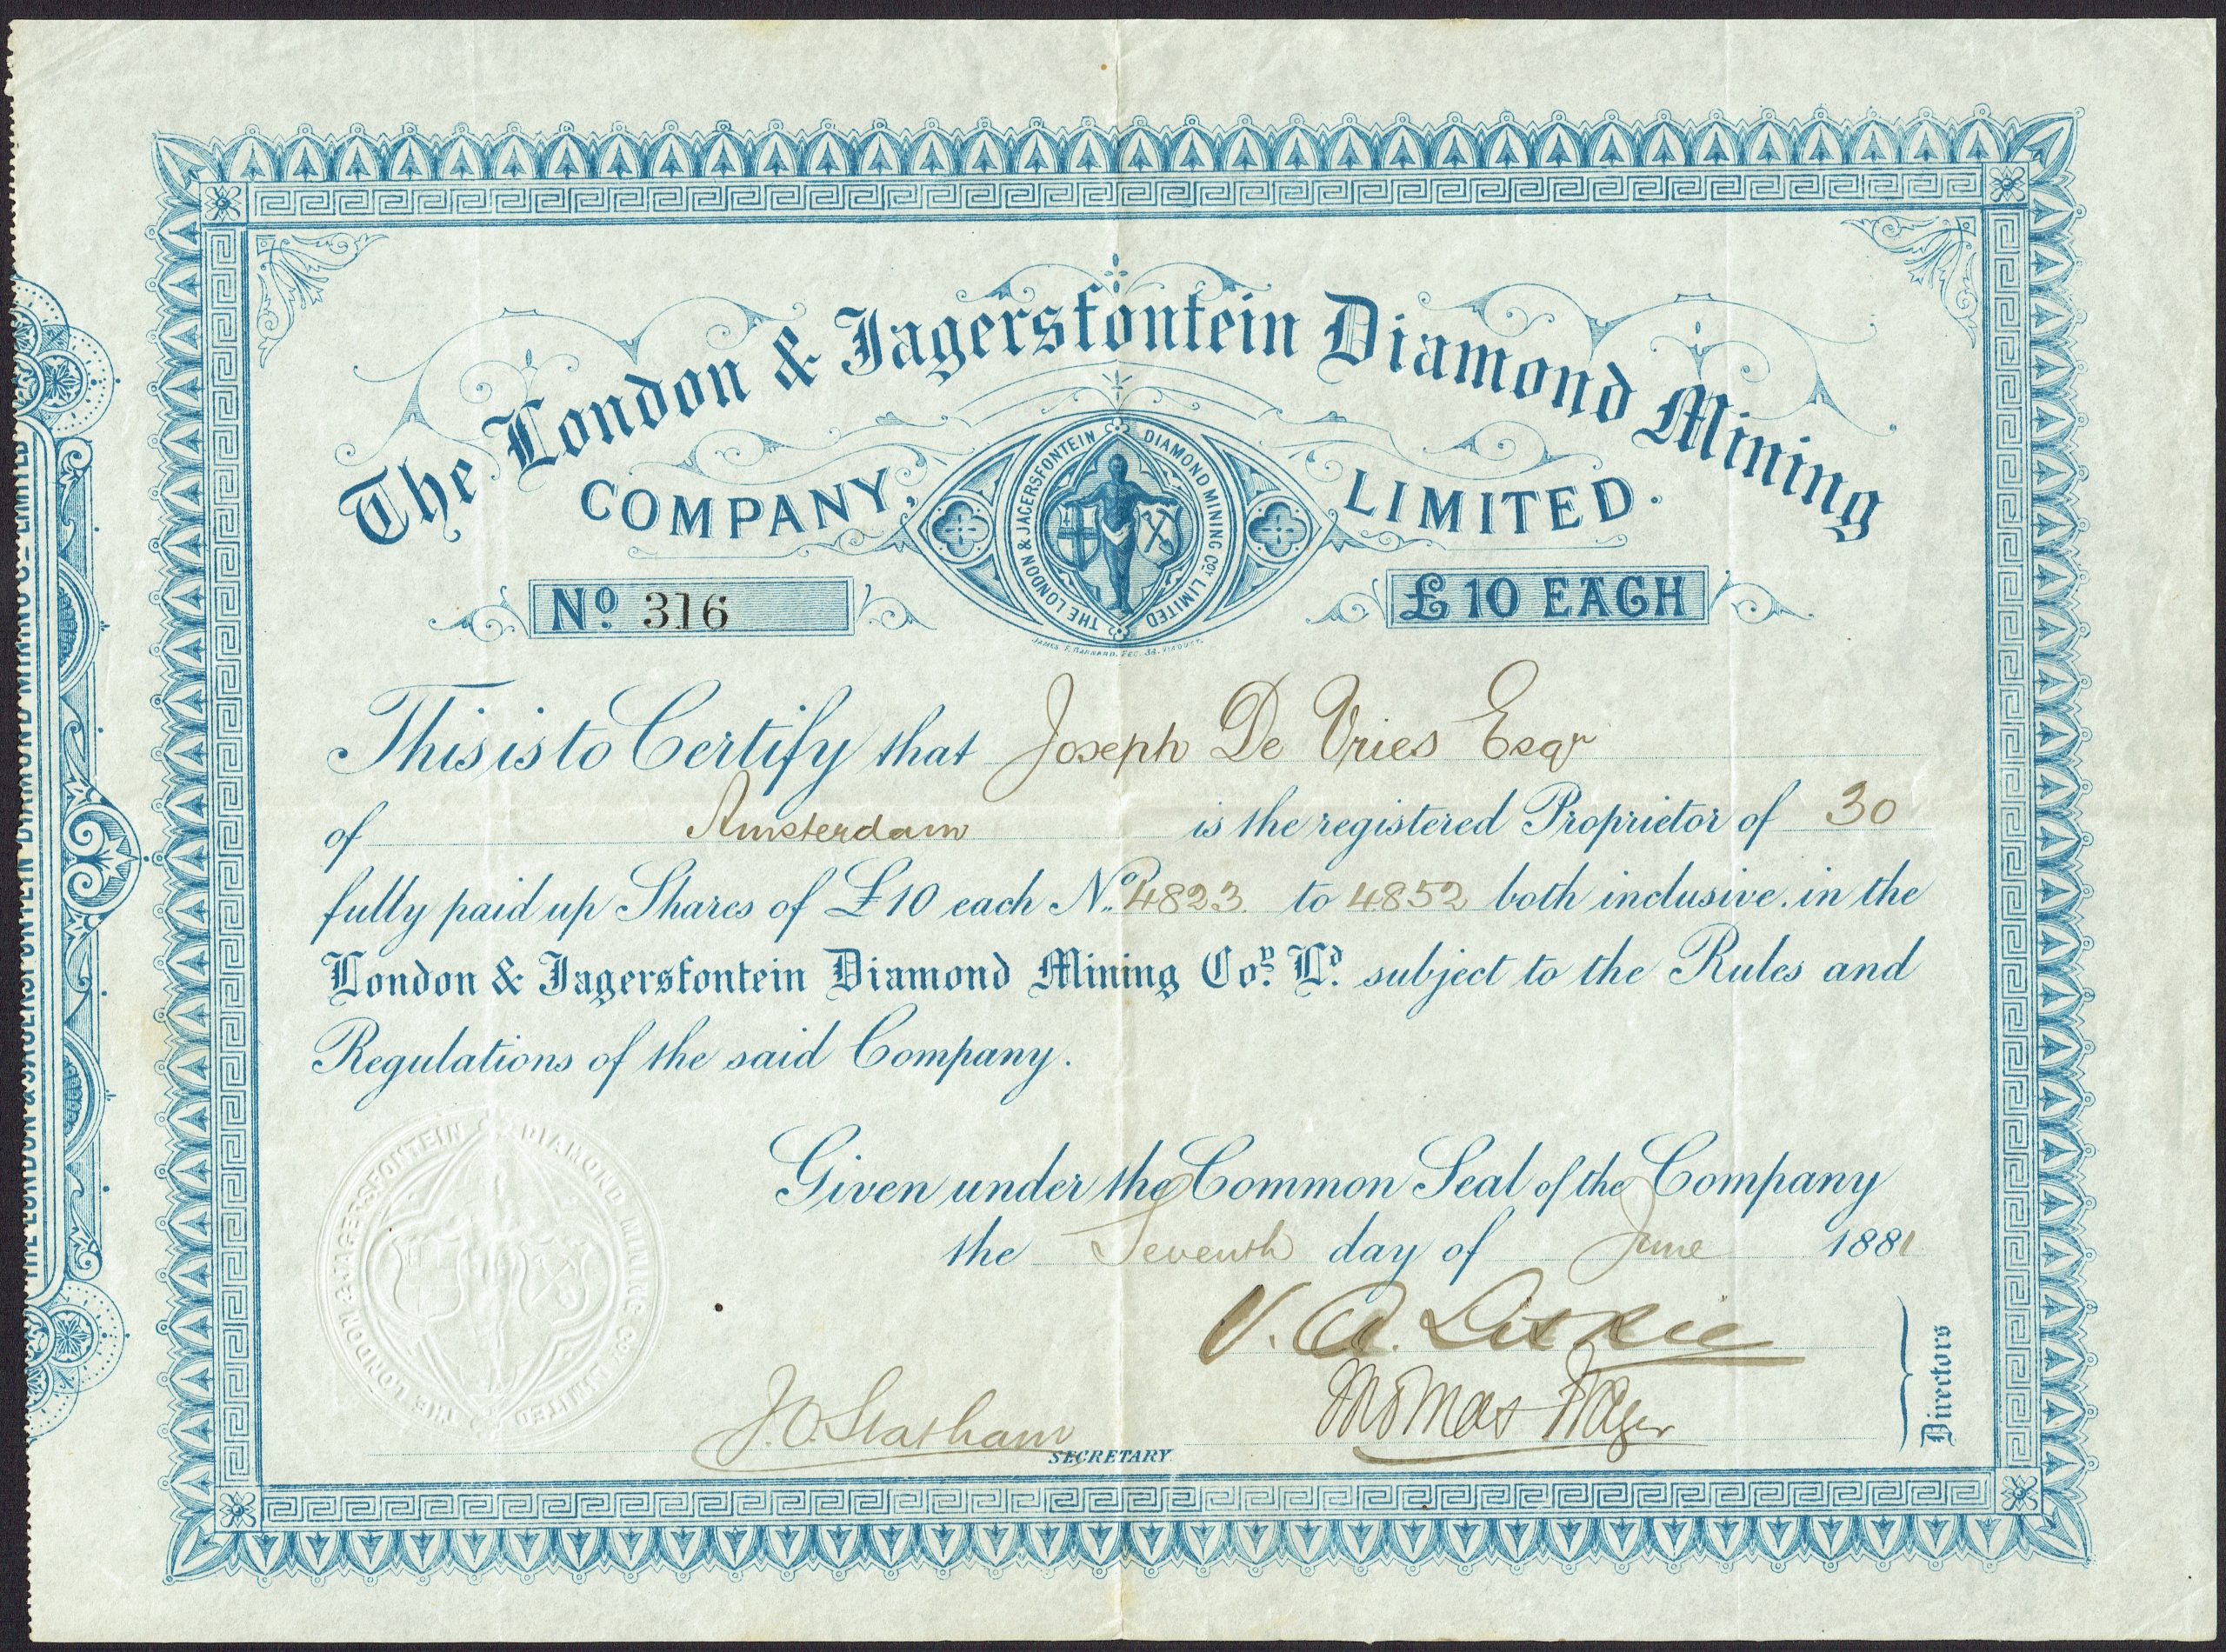 The London & Jagersfontein Diamond Mining
COMPANY, LIMITED.
THE LONDON & JAGERSFONTEIN DIAMOND MINING COY LIMITED
No. 316
£10 EACH
JAMES F. BARNARD. FEC. 3A.
This is to Certify that Joseph De Vries Esqr
of Amsterdam is the registered Proprietor of 30
fully paid up Shares of £10 each No. 4823 to 4852 both inclusive. in the
London & Jagersfontein Diamond Mining Coy. Ld. subject to the Rules and
Regulations of the said Company.
Given under the Common Seal of the Company
the Seventh day of June 1881
THE LONDON & JAGERSFONTEIN DIAMOND MINING COY LIMITED
Directors
Thomas
J.O. Statham
SECRETARY
THE LONDON & JAGERSFONTEIN DIAMOND MINING CO. LIMITED